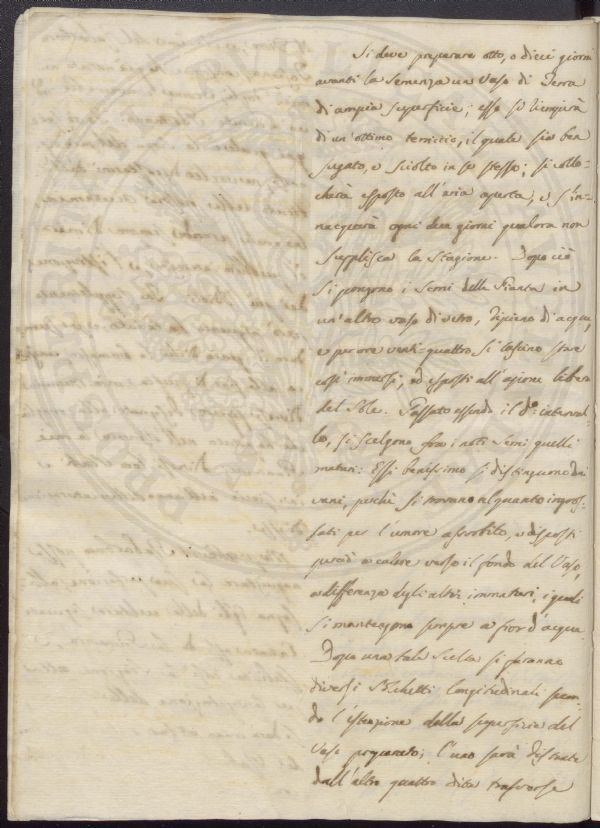 Si deve preparare otto, o dieci giorni
avanti la semenza un Vaso di Terra
di ampia superficie; esso si riempirà
di un'ottimo terriccio, il quale sia ben
sugato, e sciolto in se stesso; si collo-
cherà esposto all'aria aperta, e s'in-
nacquerà ogni due giorni qualora non
supplisca la stagione. Dopo ciò
si pongono i semi della Pianta in
un'altro vaso di vetro, ripieno di acqua,
e per ore venti-quattro si lascino stare
così immersi, ed esposti all'azione libera
del Sole. Passato essendo il do. interval-
lo, si scelgono fra i noti semi quelli
maturi: Essi benissimo si distinguono dai
vani, perchè si trovano alquanto ingros-
sati per l'umore assorbito, e disposti
perciò a calare verso il fondo del Vaso,
a differenza degli altri immaturi, i quali
si mantengono sempre a fior d'acqua.
Dopo una tale scelta si faranno
diversi solchetti longitudinali secon-
do l'estenzione della superficie del
Vaso preparato; l'uno sarà distante
dall'altro quattro dita trasverse